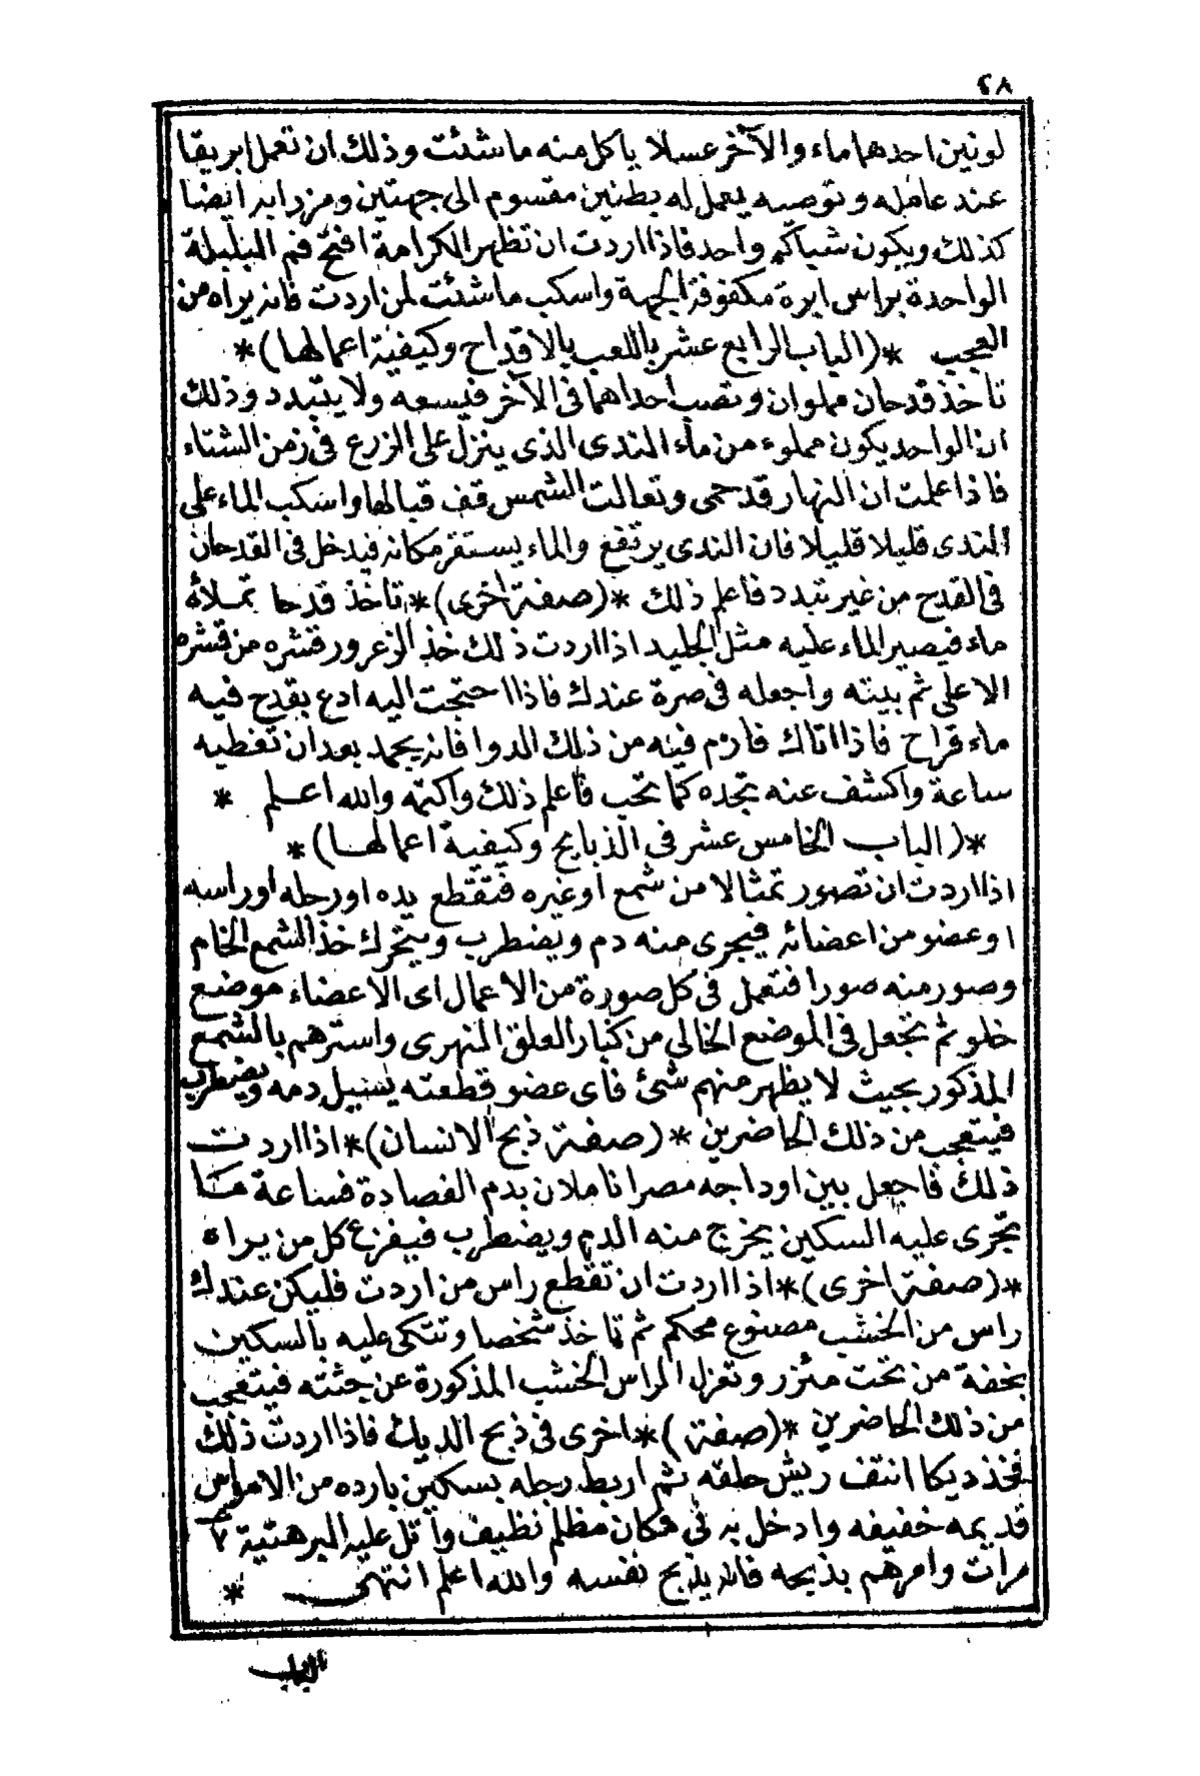 ٢٨
لونين احدهما ماء والآخر عسلا ياكل منه ما شئت وذلك ان تعمل ابريقا
عند عامله وتوصيه يعمل له بطنين مقسوم الى جهتين ومزرابه ايضا
كذلك ويكون شباكهم واحد فاذا اردت ان تظهر الكرامة افتح فم البلبلة
الواحدة براس ابرة مكفوفة الجهة واسكب ما شئت لمن اردت فانه يراه من
العجب *(الباب الرابع عشر باللعب بالاقداح وكيفية اعمالها)*
تاخذ قدحان مملوان وتصب احداهما فى الآخر فيسعه ولا يتبدد وذلك
ان الواحد يكون مملوء من ماء الندى الذى ينزل على الزرع فى زمن الشتاء
فاذا علمت ان النهار قد حمى وتعالت الشمس قف قبالها واسكب الماء على
الندى قليلا قليلا فان الندى يرتفع والماء يستقر مكانه فيدخل فى القدحان
فى القدح من غير تبدد فاعلم ذلك *(صفة اخرى)* تاخذ قدحا تملأه
ماء فيصير الماء عليه مثل الجليد اذا اردت ذلك خذ الزعرور قشره من قشره
الاعلى ثم بيته واجعله فى صرة عندك فاذا احتجت اليه ادع بقدح فيه
ماء قراح فاذا اتاك فارم فيه من ذلك الدوا فانه يجمد بعد ان تغطيه
ساعة واكشف عنه تجده كما تحب فاعلم ذلك واكتمه والله اعلم *
*(الباب الخامس عشر فى الذبايح وكيفية اعمالها)*
اذا اردت ان تصور تمثالا من شمع او غيره فتقطع يده او رجله او راسه
او عضو من اعضائه فيجرى منه دم ويضطرب ويتحرك خذ الشمع الخام
وصور منه صورا فتعمل فى كل صورة من الاعمال اى الاعضاء موضع
خلو ثم تجعل فى الموضع الخالى من كبار العلق النهرى واسترهم بالشمع
المذكور بحيث لا يظهر منهم شئ فاى عضو قطعته يسيل دمه ويضطرب
فيتعجب من ذلك الحاضرين *(صفة ذبح الانسان)* اذا اردت
ذلك فاجعل بين اوداجه مصرانا ملان بدم الفصادة فساعة ما
تجرى عليه السكين يخرج منه الدم ويضطرب فيفزع كل من يراه
*(صفة اخرى)* اذا اردت ان تقطع راس من اردت فليكن عندك
راس من الخشب مصنوع محكم ثم تاخذ شخصا وتتكى عليه بالسكين
بخفة من تحت مئزر وتعزل الراس الخشب المذكورة عن جثته فيتعجب
من ذلك الحاضرين *(صفة)* اخرى فى ذبح الديك فاذا اردت ذلك
فخذ ديكا انتف ريش حلقه ثم اربط رجله بسكين بارده من الامواس
قديمه خفيفه وادخل به فى مكان مظلم نظيف واتل عليه البرهتية ٧
مرات وامرهم بذبحه فانه يذبح نفسه والله اعلم انتهى *
الباب